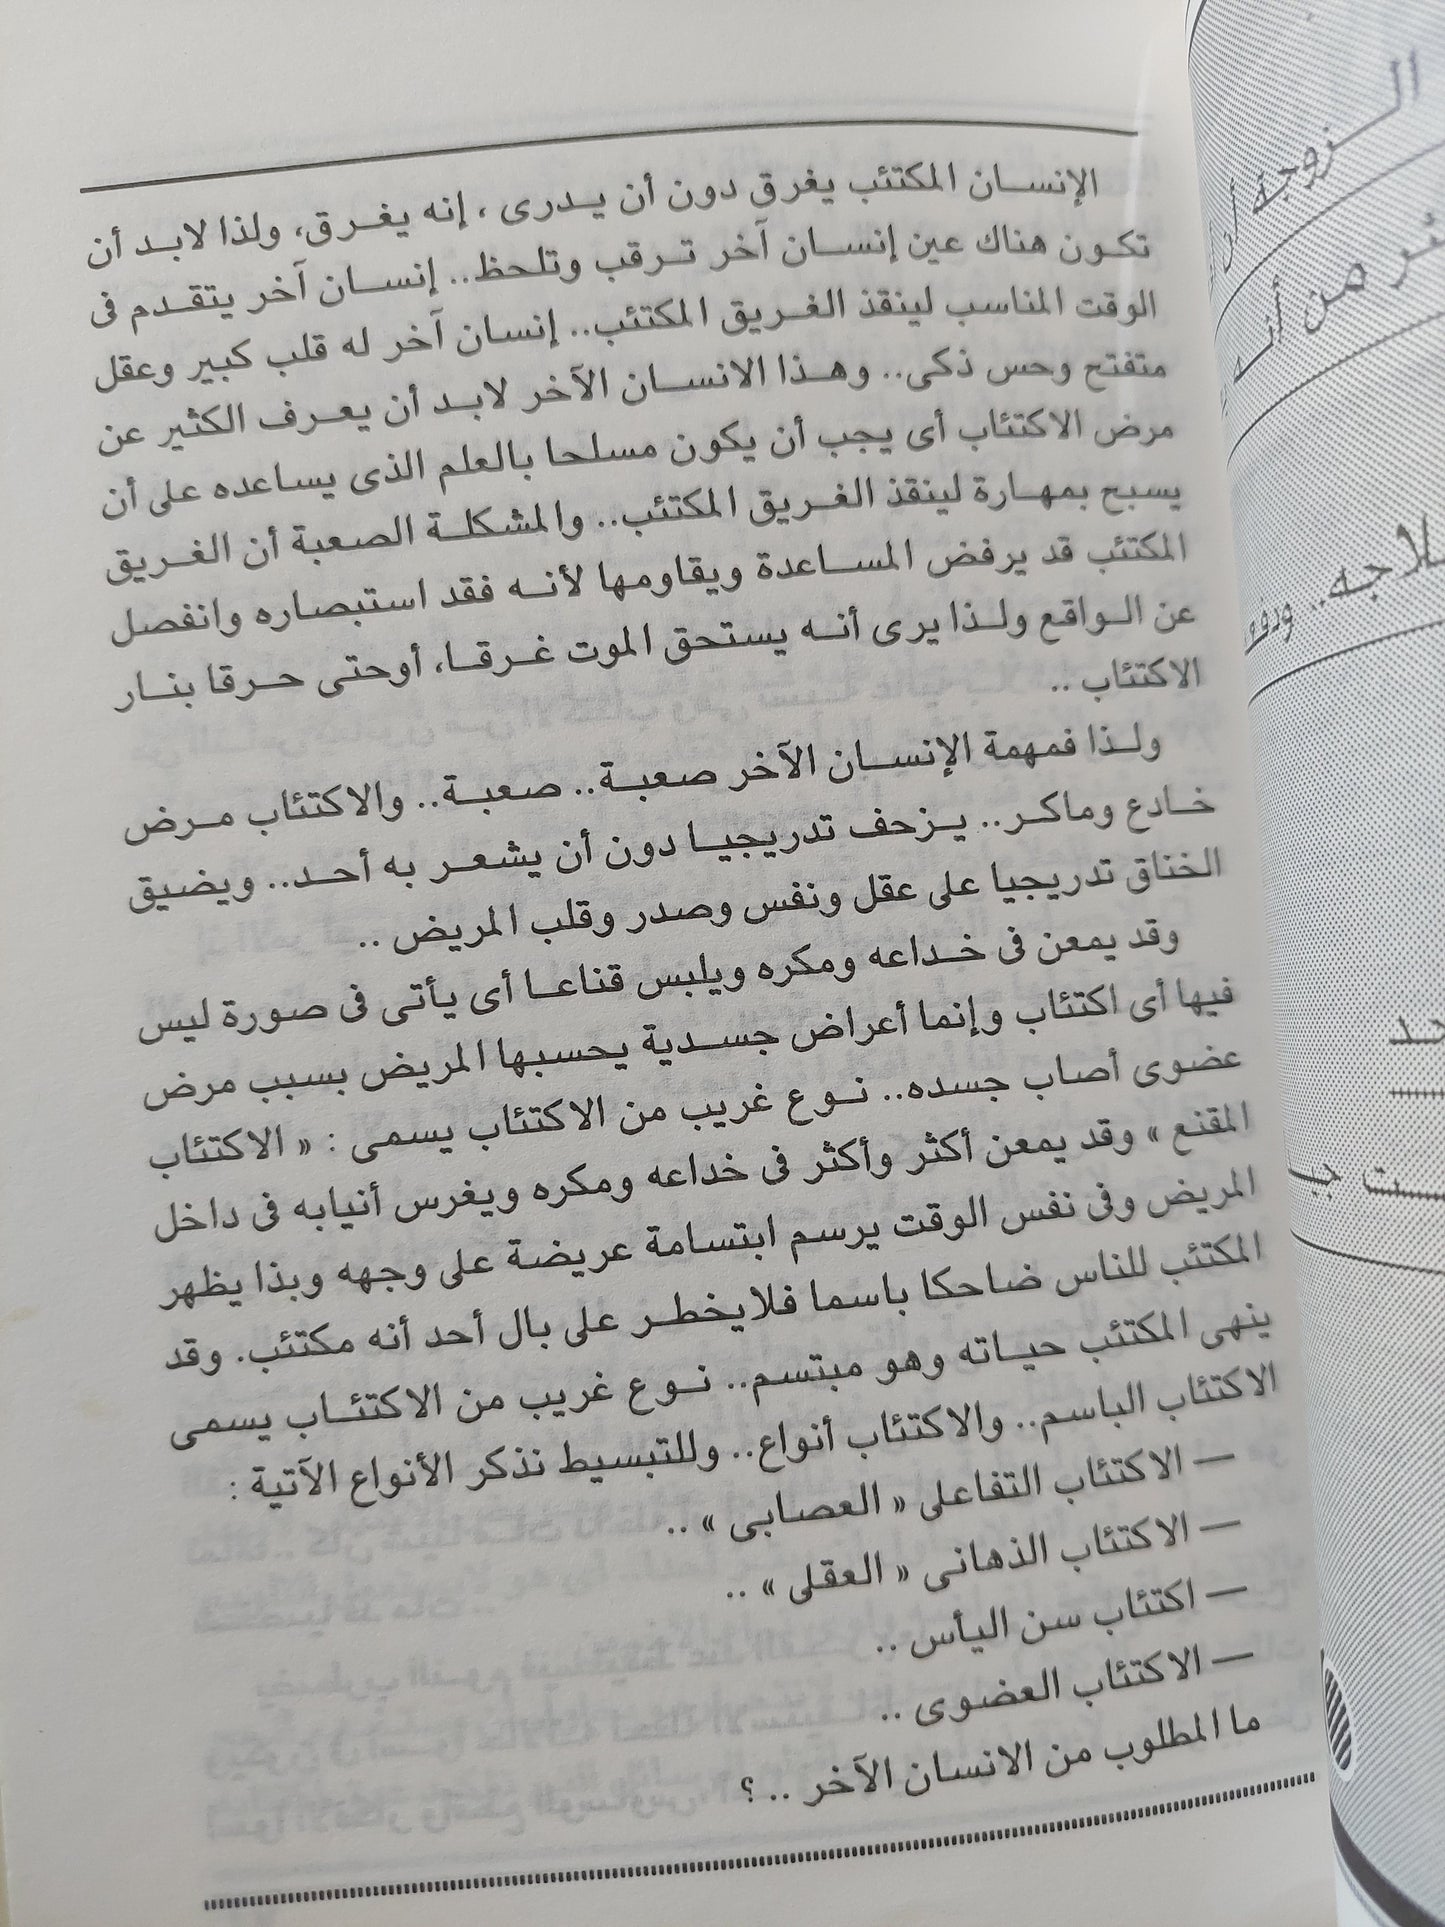 الإنسان المكتئب يغرق دون أن يدرى ، إنه يغرق، ولذا لابد أن
تكون هناك عين إنسان آخر ترقب وتلحظ.. إنسان آخر يتقدم فى
الوقت المناسب لينقذ الغريق المكتئب.. إنسان آخر له قلب كبير وعقل
متفتح وحس ذكى.. وهذا الانسان الآخر لابد أن يعرف الكثير عن
مرض الاكتئاب أى يجب أن يكون مسلحا بالعلم الذى يساعده على أن
يسبح بمهارة لينقذ الغريق المكتئب.. والمشكلة الصعبة أن الغريق
المكتئب قد يرفض المساعدة ويقاومها لأنه فقد استبصاره وانفصل
عن الواقع ولذا يرى أنه يستحق الموت غرقا، أوحتى حرقا بنار
الاكتئاب ..
ولذا فمهمة الإنسان الآخر صعبة.. صعبة.. والاكتئاب مرض
خادع وماكر.. يزحف تدريجيا دون أن يشعر به أحد.. ويضيق
الخناق تدريجيا على عقل ونفس وصدر وقلب المريض ..
وقد يمعن فى خداعه ومكره ويلبس قناعا أى يأتى فى صورة ليس
فيها أى اكتئاب وإنما أعراض جسدية يحسبها المريض بسبب مرض
عضوى أصاب جسده.. نوع غريب من الاكتئاب يسمى : « الاكتئاب
المقنع » وقد يمعن أكثر وأكثر فى خداعه ومكره ويغرس أنيابه فى داخل
المريض وفى نفس الوقت يرسم ابتسامة عريضة على وجهه وبذا يظهر
المكتئب للناس ضاحكا باسما فلايخطر على بال أحد أنه مكتئب. وقد
ينهى المكتئب حياته وهو مبتسم.. نوع غريب من الاكتئاب يسمى
الاكتئاب الباسم.. والاكتئاب أنواع.. وللتبسيط نذكر الأنواع الآتية :
— الاكتئاب التفاعلى « العصابى » ..
— الاكتئاب الذهانى « العقلى » ..
— اكتئاب سن اليأس ..
— الاكتئاب العضوى ..
ما المطلوب من الانسان الآخر .. ؟
الزوجة
من أنه